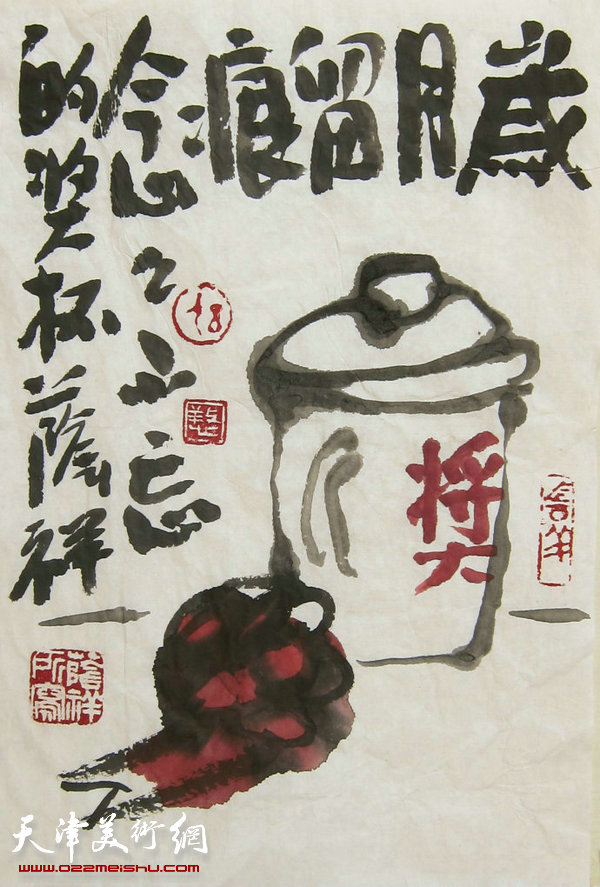 歲月留痕
念々不忘
的奖杯蔭祥
奨
蔭祥所寫
天津美術網
www.022meishu.com